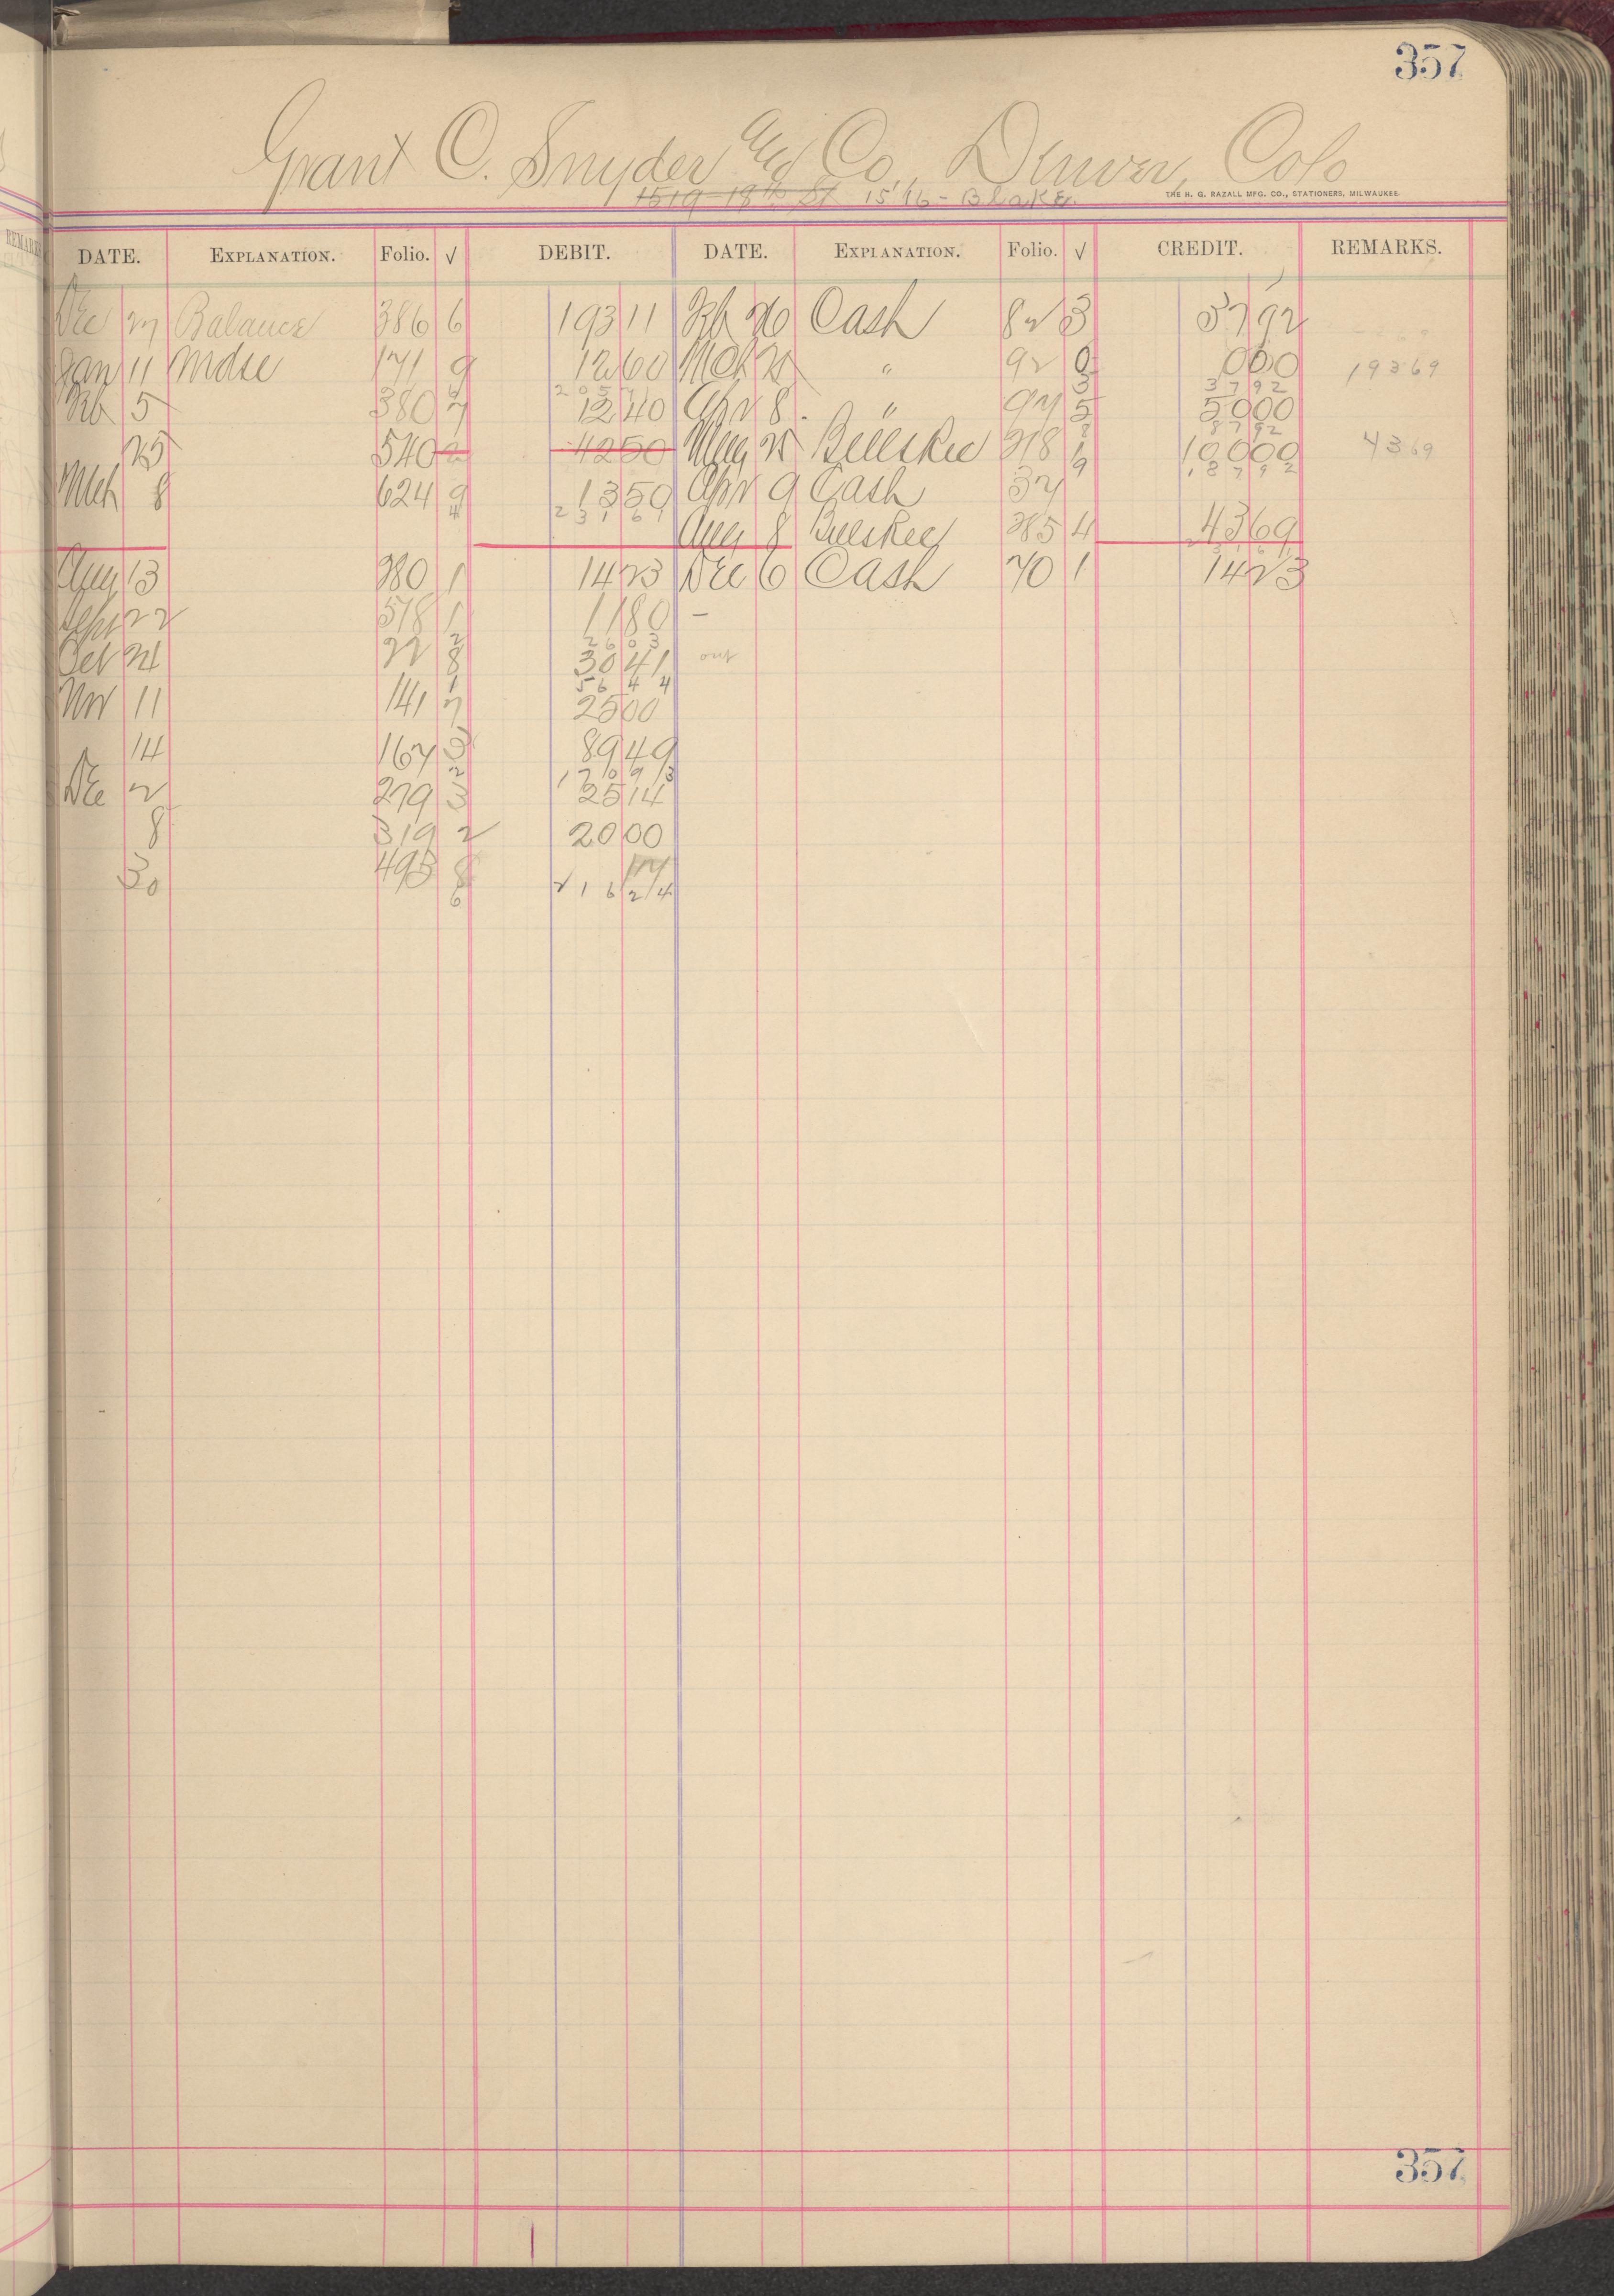 357
Grant C. Snyder and Co., Denver, Colo
1519-18th St 1516 - Blake.
THE H. G. RAZALL MFG. CO., STATIONERS, MILWAUKEE.
DATE. EXPLANATION. Folio. √ DEBIT. DATE. EXPLANATION. Folio. √ CREDIT. REMARKS.
Dec 27 Balance 386 6 193 11 Feb 26 Cash 82 3 37 92
Jan 11 Mdse 171 9 12 60 Mch 21 " 92 0 0 00 193 69
205 71 3 37 92
Feb 5 380 7 12 40 Apr 8 " 97 5 50 00
8 87 92
25 540 2 42 50 May 25 Bills Rec 218 1 100 00 43 69
9 187 92
Mch 8 624 9 13 50 Apr 9 Cash 37
4 231 61
Aug 8 Bills Rec 285 4 43 69
Aug 13 280 1 14 23 Dec 6 Cash 70 1 14 23
Sept 22 518 1 11 80 -
2 26 03
Oct 21 22 8 30 41 out
1 56 44
Nov 11 141 7 25 00
14 167 3 89 49
2 170 93
Dec 2 279 3 25 14
8 319 2 20 00
30 495 8 17
6 216 24
357